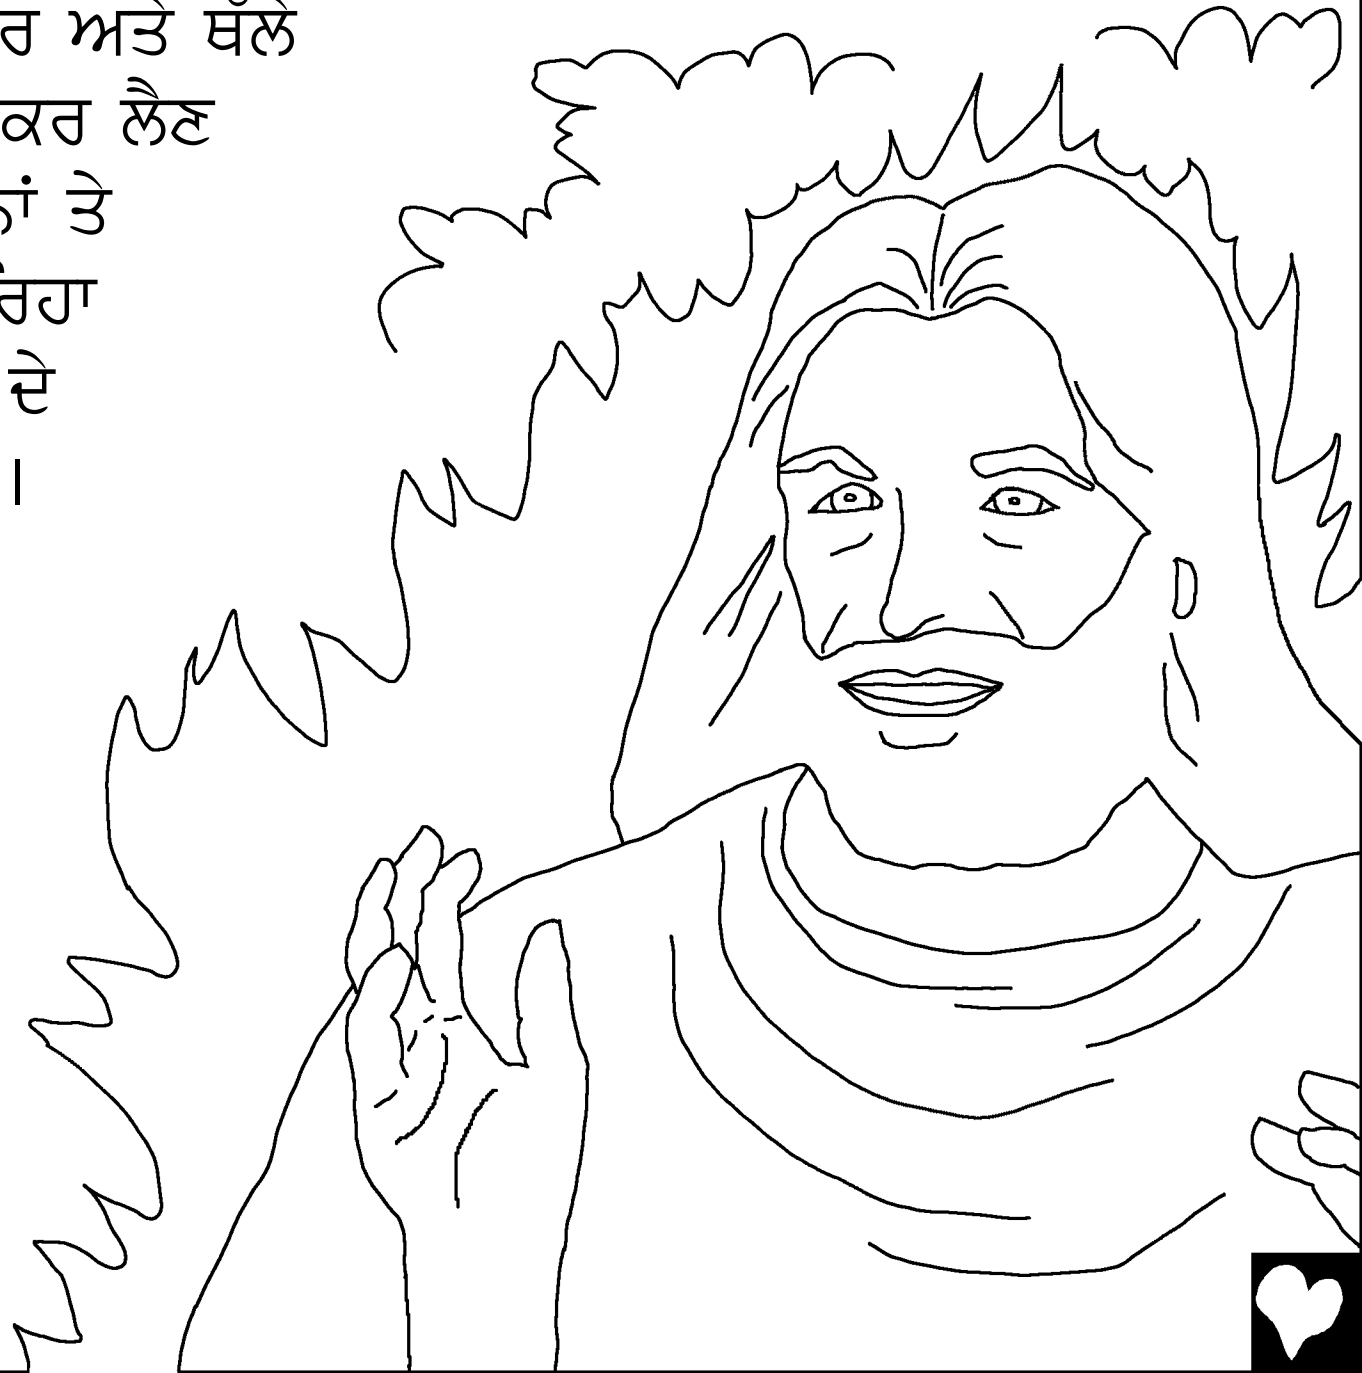 ਰ ਅਤੇ ਥੱਲੇ
ਕਰ ਲੈਣ
ਨਾਂ ਤੇ
ਰਿਹਾ
ਦੇ
।